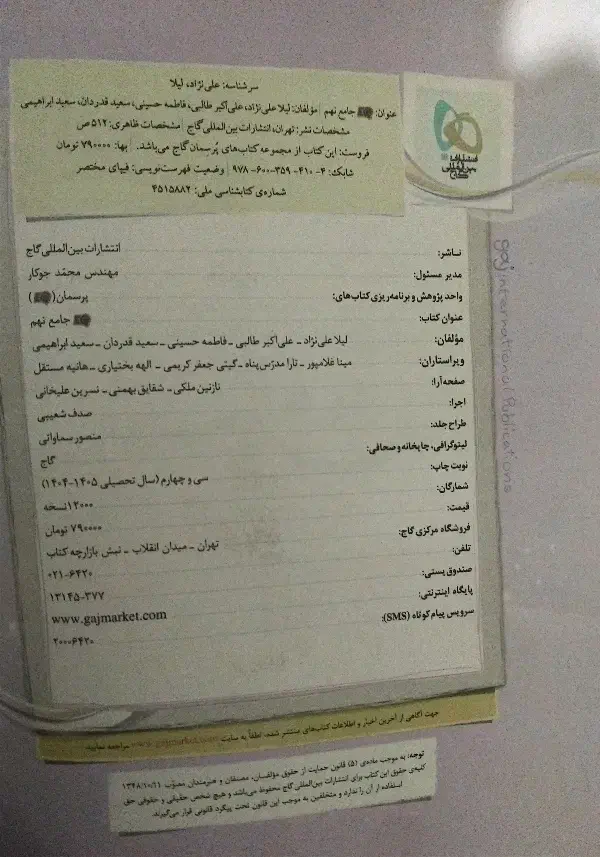 سرشناسه: علی‌نژاد، لیلا
عنوان: جامع نهم | مؤلفان: لیلا علی‌نژاد، علی‌اکبر طالبی، فاطمه حسینی، سعید قدردان، سعید ابراهیمی
مشخصات نشر: تهران، انتشارات بین‌المللی گاج | مشخصات ظاهری: ۵۱۲ ص
فروست: این کتاب از مجموعه کتاب‌های پُرسمان گاج می‌باشد. | بها: ۷۹۰۰۰۰ تومان
شابک: ۴-۴۱۰-۳۵۹-۶۰۰-۹۷۸ | وضعیت فهرست‌نویسی: فیپای مختصر
شماره‌ی کتابشناسی ملی: ۴۵۱۵۸۸۲
انتشارات
بین‌المللی
گاج
gaj international Publications
ناشر: انتشارات بین‌المللی گاج
مدیر مسئول: مهندس محمّد جوکار
واحد پژوهش و برنامه‌ریزی کتاب‌های: پرسمان ( )
عنوان کتاب: جامع نهم
مؤلفان: لیلا علی‌نژاد ـ علی‌اکبر طالبی ـ فاطمه حسینی ـ سعید قدردان ـ سعید ابراهیمی
ویراستاران: مینا غلامپور ـ تارا مدرّس‌پناه ـ گیتی جعفر کریمی ـ الهه بختیاری ـ هانیه مستقل
صفحه‌آرا: نازنین ملکی ـ شقایق بهمنی ـ نسرین علیخانی
اجرا: صدف شعیبی
طراح جلد: منصور سماواتی
لیتوگرافی، چاپخانه و صحافی: گاج
نوبت چاپ: سی و چهارم (سال تحصیلی ۱۴۰۵-۱۴۰۴)
شمارگان: ۱۲۰۰۰ نسخه
قیمت: ۷۹۰۰۰۰ تومان
فروشگاه مرکزی گاج: تهران ـ میدان انقلاب ـ نبش بازارچه کتاب
تلفن: ۰۲۱-۶۴۲۰
صندوق پستی: ۱۳۱۴۵-۳۷۷
پایگاه اینترنتی: www.gajmarket.com
سرویس پیام کوتاه (SMS): ۲۰۰۰۶۴۲۰
جهت آگاهی از آخرین اخبار و اطلاعات کتاب‌های منتشر شده، لطفاً به سایت www.gajmarket.com مراجعه نمایید.
توجه: به موجب ماده‌ی (۵) قانون حمایت از حقوق مؤلفان، مصنفان و هنرمندان مصوّب ۱۳۴۸/۱۰/۱۱
کلیه‌ی حقوق این کتاب برای انتشارات بین‌المللی گاج محفوظ می‌باشد و هیچ شخص حقیقی و حقوقی حق
استفاده از آن را ندارد و متخلفین به موجب این قانون تحت پیگرد قانونی قرار می‌گیرند.